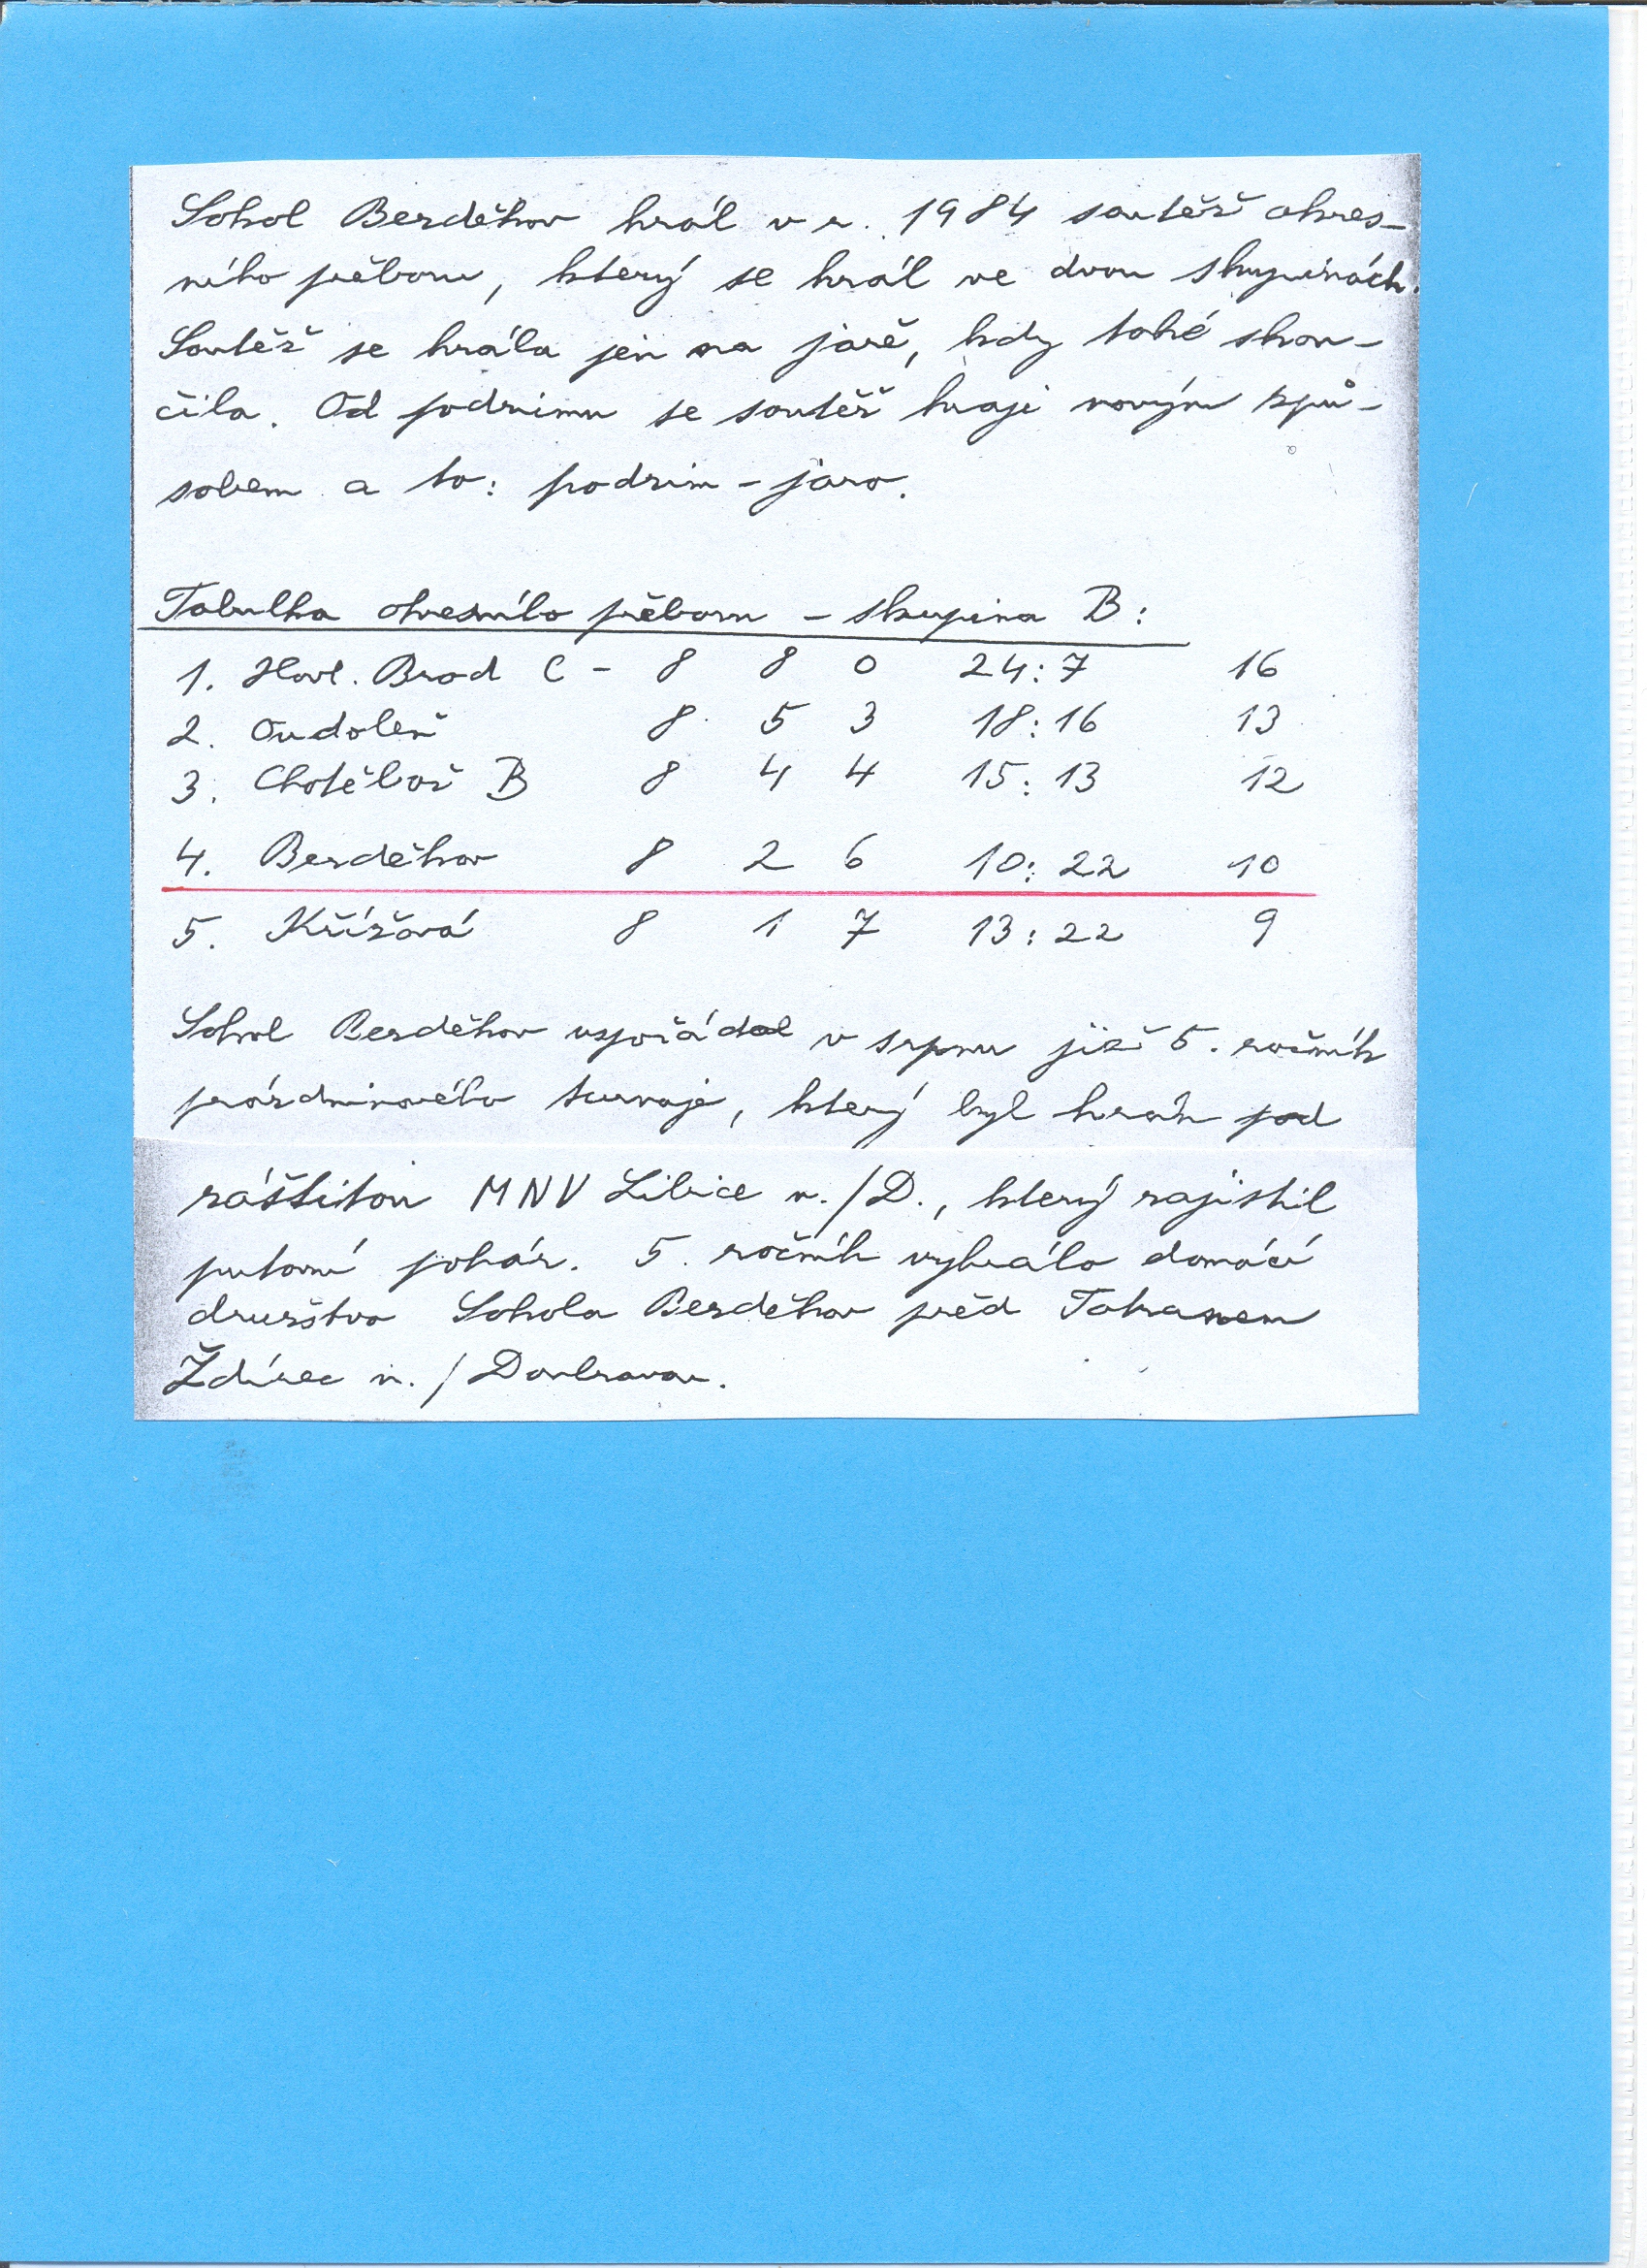 Sokol Bezděkov hrál v r. 1984 soutěž okres-
ního přeboru, který se hrál ve dvou skupinách.
Soutěž se hrála jen na jaře, kdy také skon-
čila. Od podzimu se soutěž hraje novým způ-
sobem a to: podzim - jaro.
Tabulka okresního přeboru - skupina B:
1. Havl. Brod C - 8 8 0 24:7 16
2. Oudoleň 8 5 3 18:16 13
3. Chotěboř B 8 4 4 15:13 12
4. Bezděkov 8 2 6 10:22 10
5. Křížová 8 1 7 13:22 9
Sokol Bezděkov uspořádal v srpnu již 5. ročník
prázdninového turnaje, který byl hrán pod
záštitou MNV Libice n./D., který zajistil
putovní pohár. 5. ročník vyhrálo domácí
družstvo Sokola Bezděkov před Tatranem
Ždírec n./Doubravou.